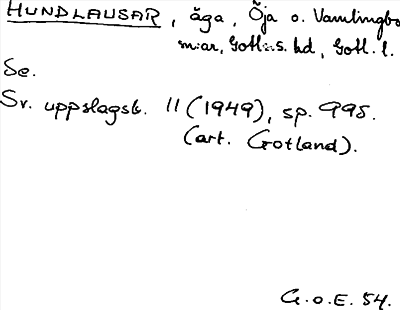 HUNDLAUSAR, äga, Öja o. Vamlingbo
s:nar, Gotl:s. hd, Gotl. l.
Se.
Sv. uppslagsb. 11 (1949), sp. 995.
(art. Gotland).
G.o.E. 54.